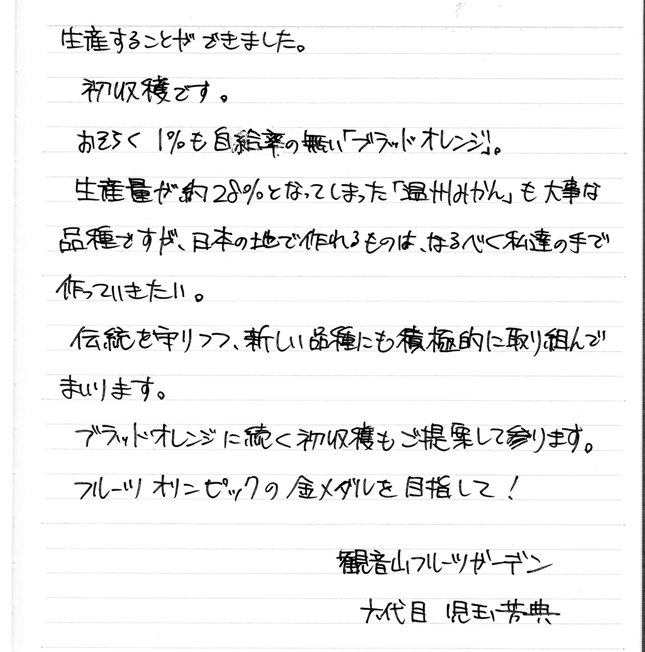 生産することができました。
初収穫です。
おそらく1%も自給率の無い「ブラッドオレンジ」。
生産量が約28%となってしまった「温州みかん」も大事な
品種ですが、日本の地で作れるものは、なるべく私達の手で
作っていきたい。
伝統を守りつつ、新しい品種にも積極的に取り組んで
まいります。
ブラッドオレンジに続く初収穫もご提案して参ります。
フルーツオリンピックの金メダルを目指して!
観音山フルーツガーデン
六代目 児玉芳典